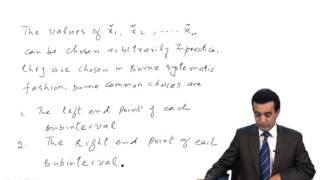 The values of x̃₁, x̃₂, .... x̃ₙ
can be chosen arbitrarily Inpractice,
they are chosen in some systematic
fashion, some common choices are
1. The left end point of each
subinterval
2. The Right end point of each
subinterval.